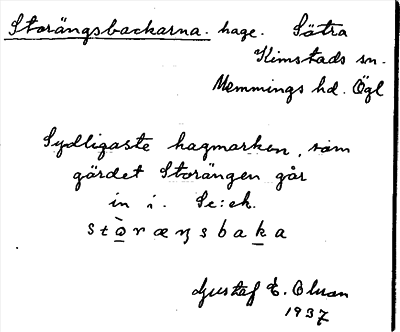 Storängsbackarna. hage. Sätra
Kimstads sn.
Memmings hd. Ögl
Sydligaste hagmarken, som
gärdet Storängen går
in i. Se: ek.
stòræŋsbaka
Gustaf E. Olsson
1937